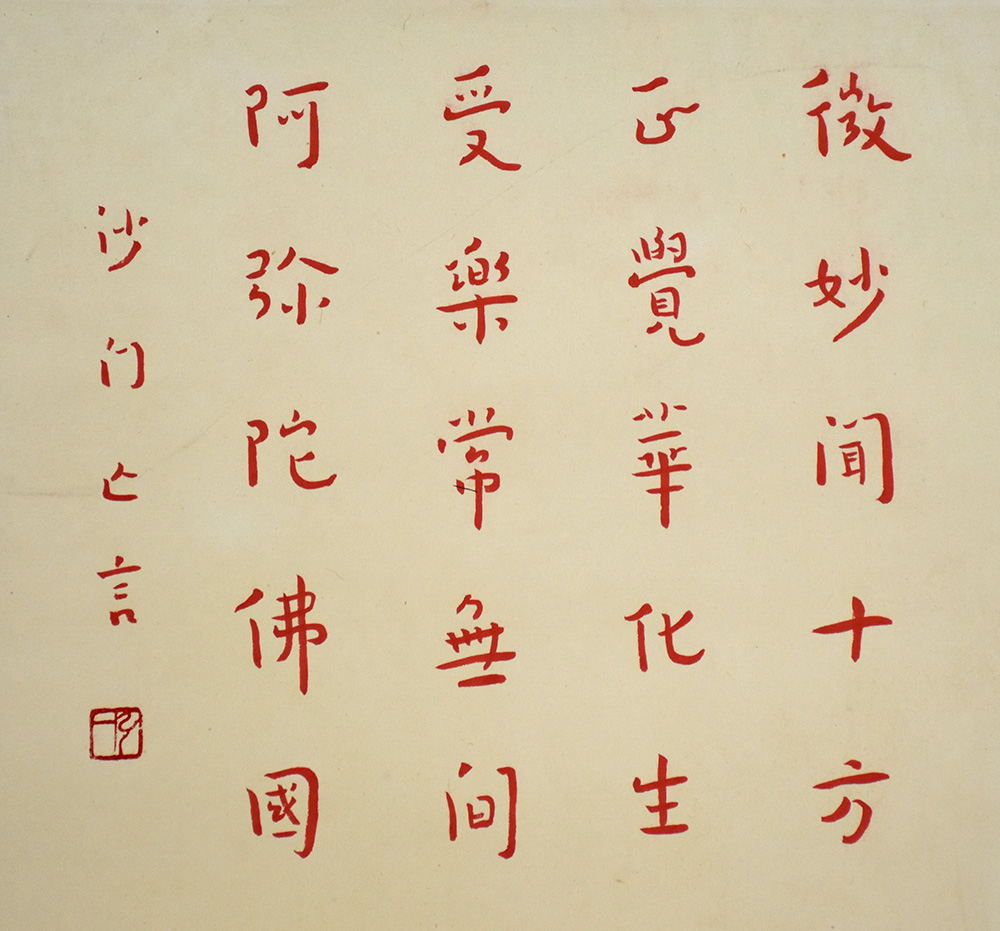 微妙聞十方
正覺華化生
受樂常無間
阿弥陀佛國
沙门亡言